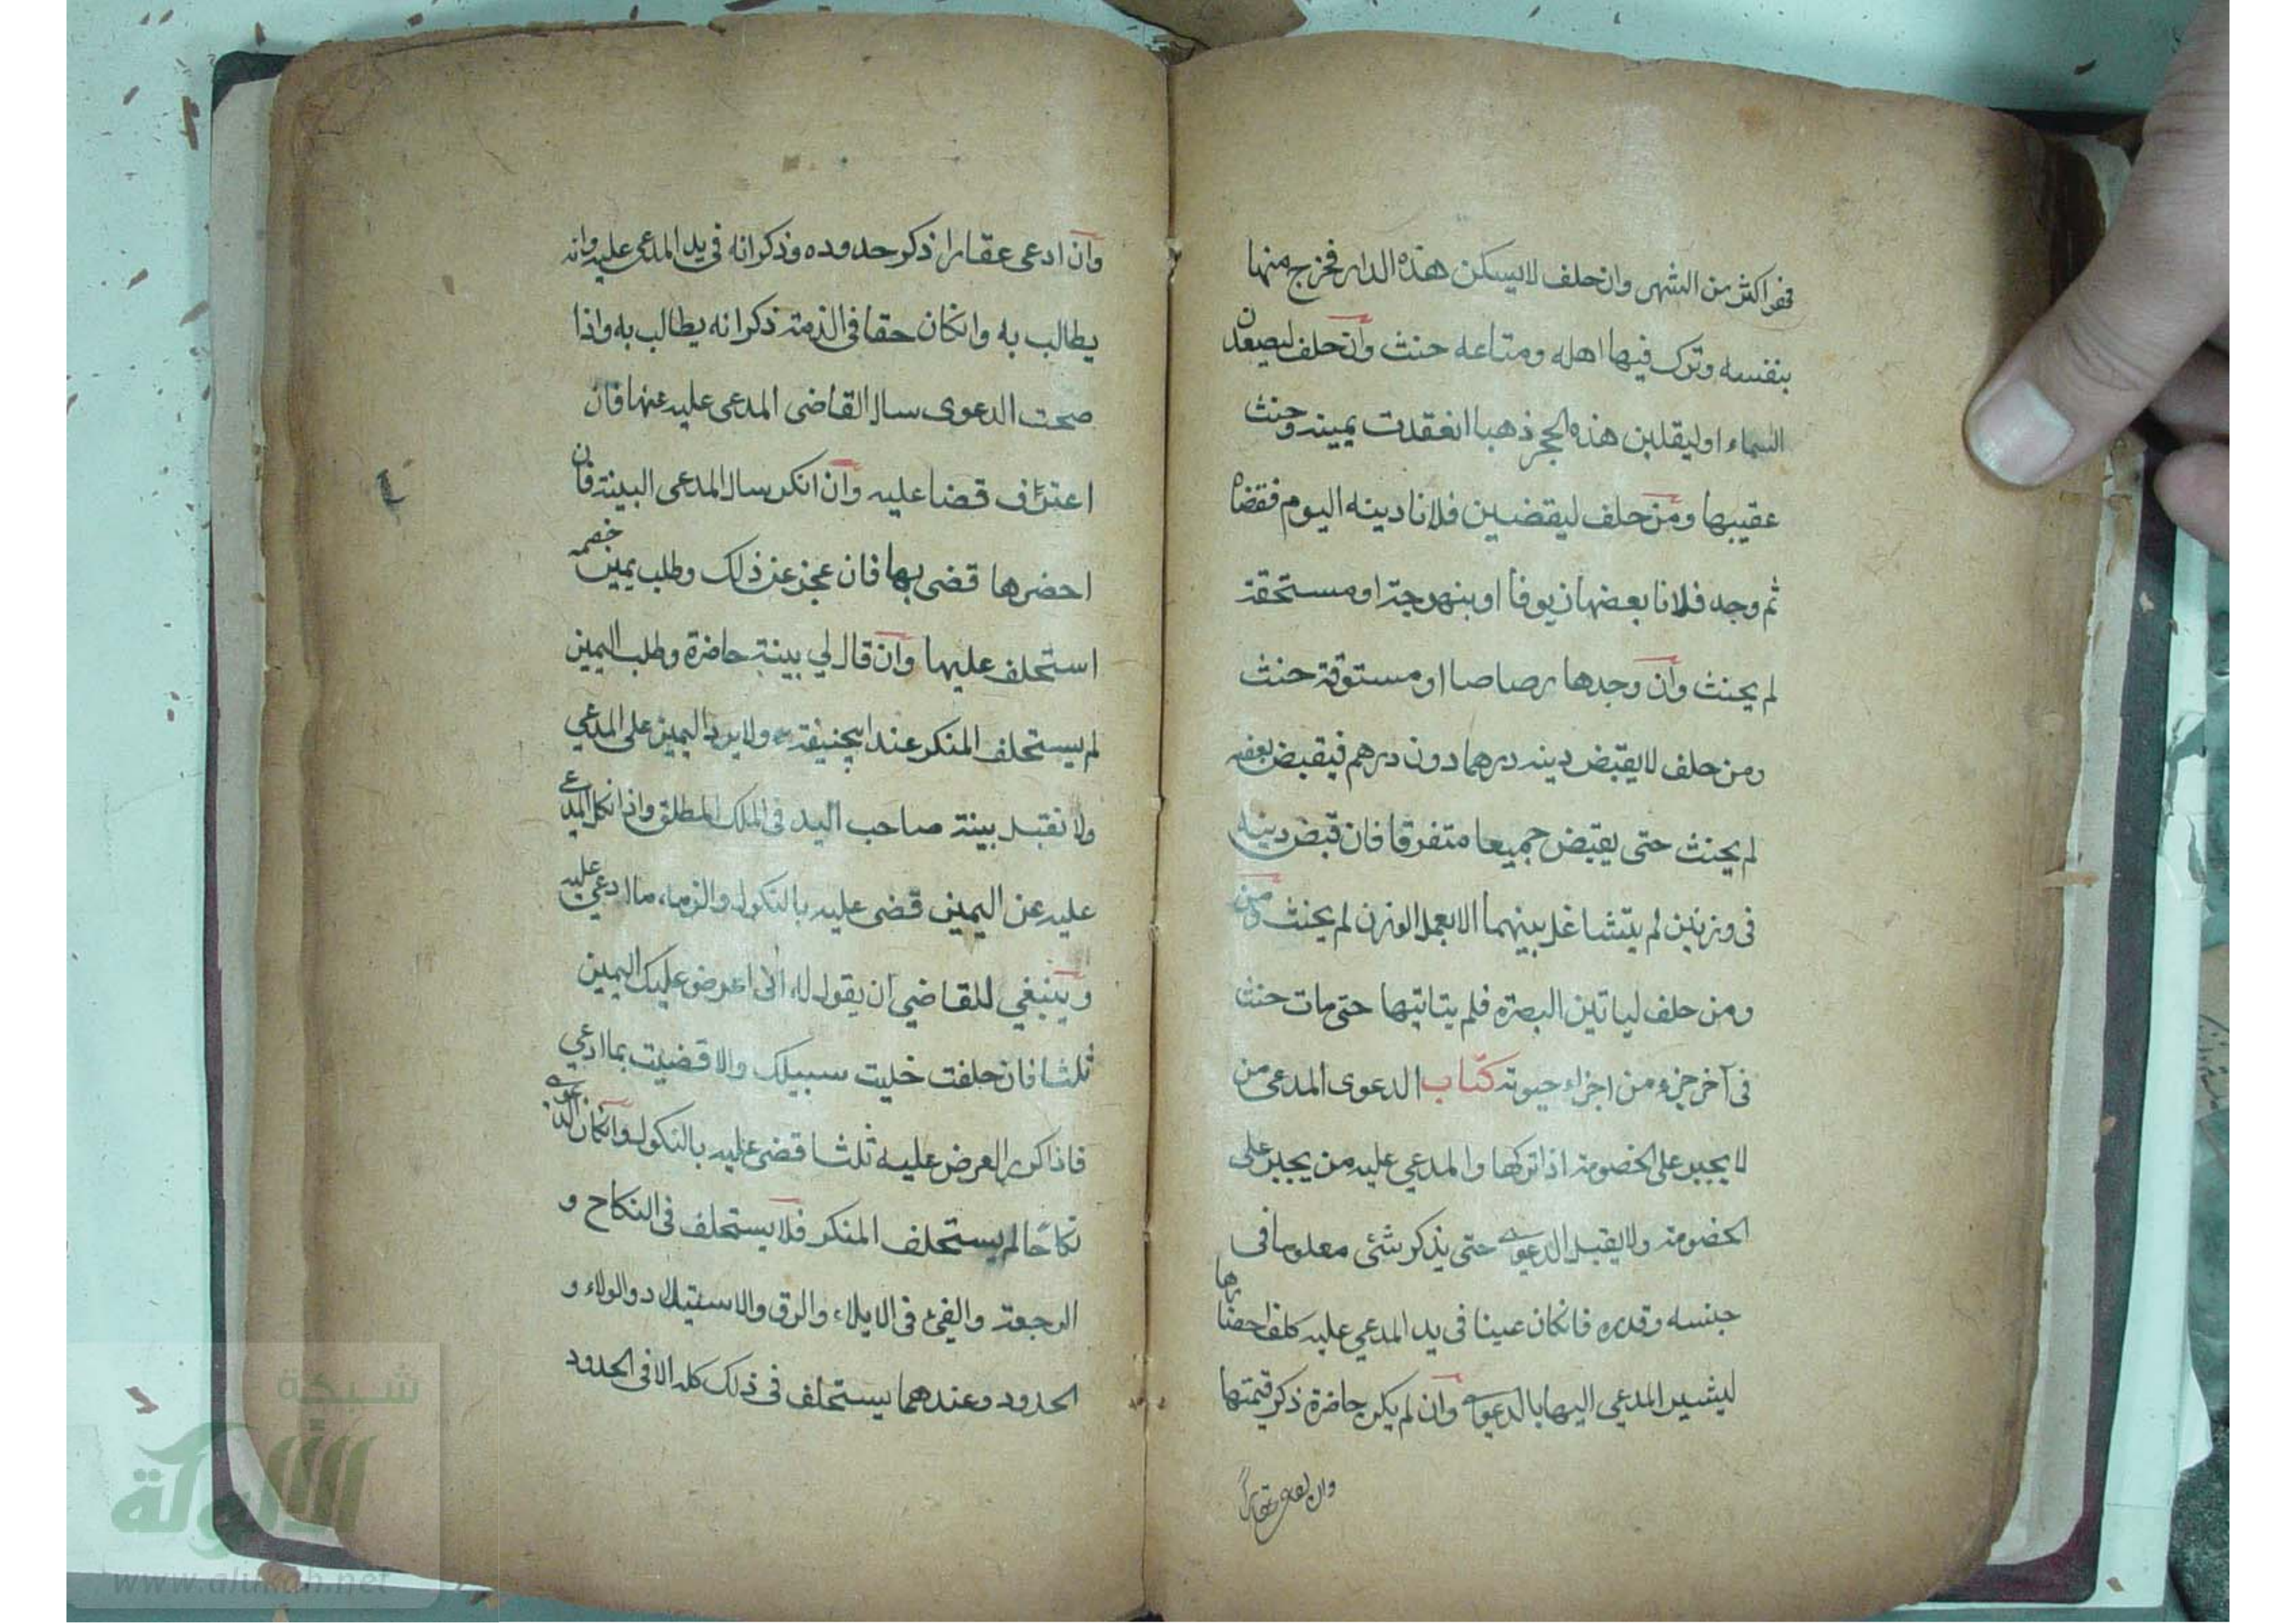 فهو اكثر من الشهر وان حلف لا يسكن هذه الدار فخرج منها
بنفسه وترك فيها اهله ومتاعه حنث وان حلف ليصعدن
السماء او ليقلبن هذه الحجر ذهبا انعقدت يمينه وحنث
عقيبها ومن حلف ليقضين فلانا دينه اليوم فقضاه
ثم وجد فلانا بعضها زيوفا او بنهرجة او مستحقة
لم يحنث وان وجدها رصاصا او مستوقة حنث
ومن حلف لا يقبض دينه درهما دون درهم فيقبض بعضه
لم يحنث حتى يقبض جميعا متفرقا فان قبض دينه
فى وزنين لم يتشاغل بينهما الا بعمل الوزن لم يحنث ومن
ومن حلف لياتين البصرة فلم يتاتيها حتى مات حنث
فى آخر جزء من اجزاء حيوته كتاب الدعوى المدعى من
لا يجبر على الخصومة اذا تركها والمدعي عليه من يجبر على
الخصومة ولا يقبل الدعوى حتى يذكر شئى معلوما فى
جنسه وقدره فانكان عينا فى يد المدعي عليه كلف احضارها
ليشير المدعي اليها بالدعوى وان لم يكن حاضرة ذكر قيمتها
وان ادعى عقارا
وان ادعى عقارا ذكر حدوده وذكر انه فى يد المدعى عليه وانه
يطالب به وانكان حقا فى الذمة ذكر انه يطالب به واذا
صحت الدعوى سال القاضى المدعى عليه عنها فان
اعترف قضا عليه وان انكر سال المدعى البينة فان
احضرها قضى بها فان عجز عن ذلك وطلب يمين خصمه
استحلف عليها وان قال لي بينة حاضرة وطلب اليمين
لم يستحلف المنكر عند ابيحنيفة ولا يرد اليمين على المدعي
ولا تقبل بينة صاحب اليد فى الملك المطلق واذا نكل المدعى
عليه عن اليمين قضى عليه بالنكول والزماء ما ادعي عليه
وينبغي للقاضي ان يقول له انى اعرض عليك اليمين
ثلثا فان حلفت خليت سبيلك والا قضيت بما ادعي
فاذا كرر العرض عليه ثلثا قضى عليه بالنكول وانكان الدعوى
نكاحا لم يستحلف المنكر فلا يستحلف فى النكاح و
الرجعة والفئ فى الايلاء والرق والاستيلاد والولاء و
الحدود وعندهما يستحلف فى ذلك كله الا فى الحدود
شبكة
الألوكة
www.alukah.net